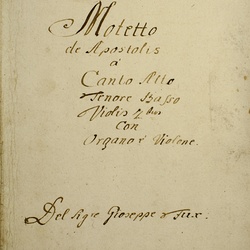 Motetto
de Apostolis
á
Canto Alto
Tenore Basso
Violis 2 bus
Con
Organo è Violone.
Del Sigre Gioseppe Fux.